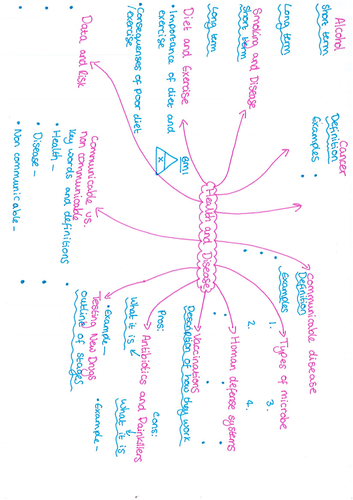 Alcohol
short term
Long term
Cancer
Definition
Examples
Communicable disease
Definition
Examples
Types of microbe
1.
2.
3.
4.
Human defense systems
Smoking and Disease
Short term
Long term
Health and Disease
Vaccinations
Description of how they work
Diet and Exercise
• Importance of diet and
exercise
• Consequences of poor diet
/exercise
BMI
X
Antibiotics and Painkillers
Pros:
Cons:
What it is
What it is
• Example –
• Example –
Data and Risk
Communicable vs.
non communicable
key words and definitions
• Health –
• Disease –
• Non communicable –
Testing New Drugs
outline of stages